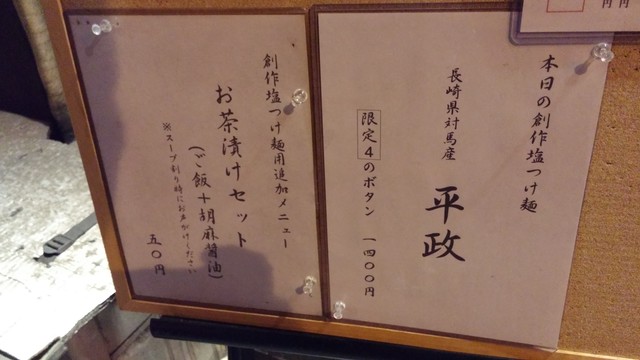 本日の創作塩つけ麺
長崎県対馬産
平政
限定4のボタン 一四〇〇円
創作塩つけ麺用追加メニュー
お茶漬けセット
(ご飯+胡麻醤油)
※スープ割り時にお声がけください
五〇円
円
円